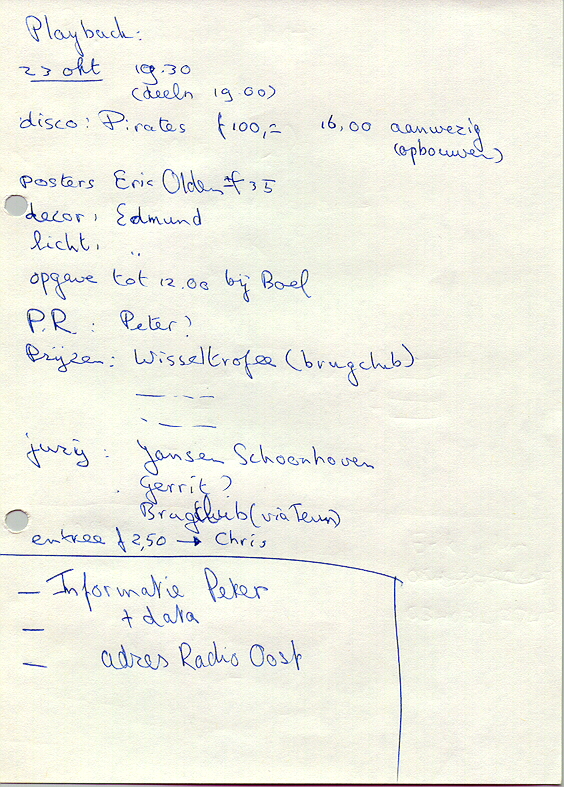 Playback:
23 okt 19.30
(deeln 19.00)
disco: Pirates f 100,= 16,00 aanwezig
(opbouwen)
posters Eric Olden f 35
decor, Edmund
licht, ,,
opgave tot 12.00 bij Boel
P.R. : Peter?
Prijzen: Wisseltrofee (brugclub)
jurij : Jansen Schoonhoven
Gerrit ?
Brugclub (via Teun)
entree f 2,50 → Chris
— Informatie Peter
— + data
— adres Radio Oost